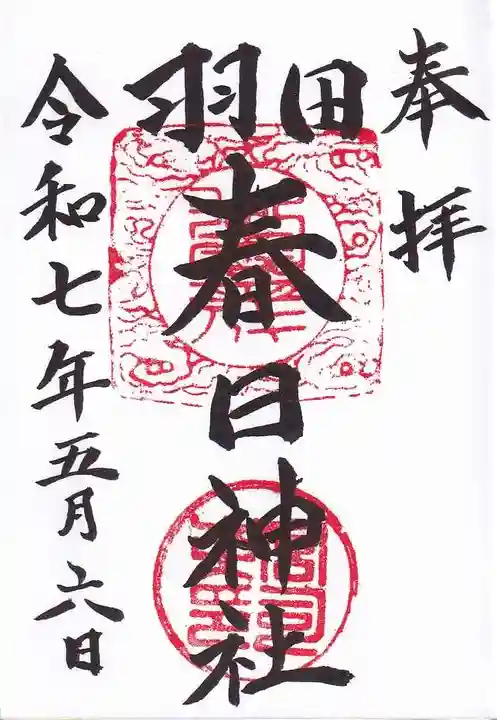 奉拝
羽田
春日神社
令和七年五月六日